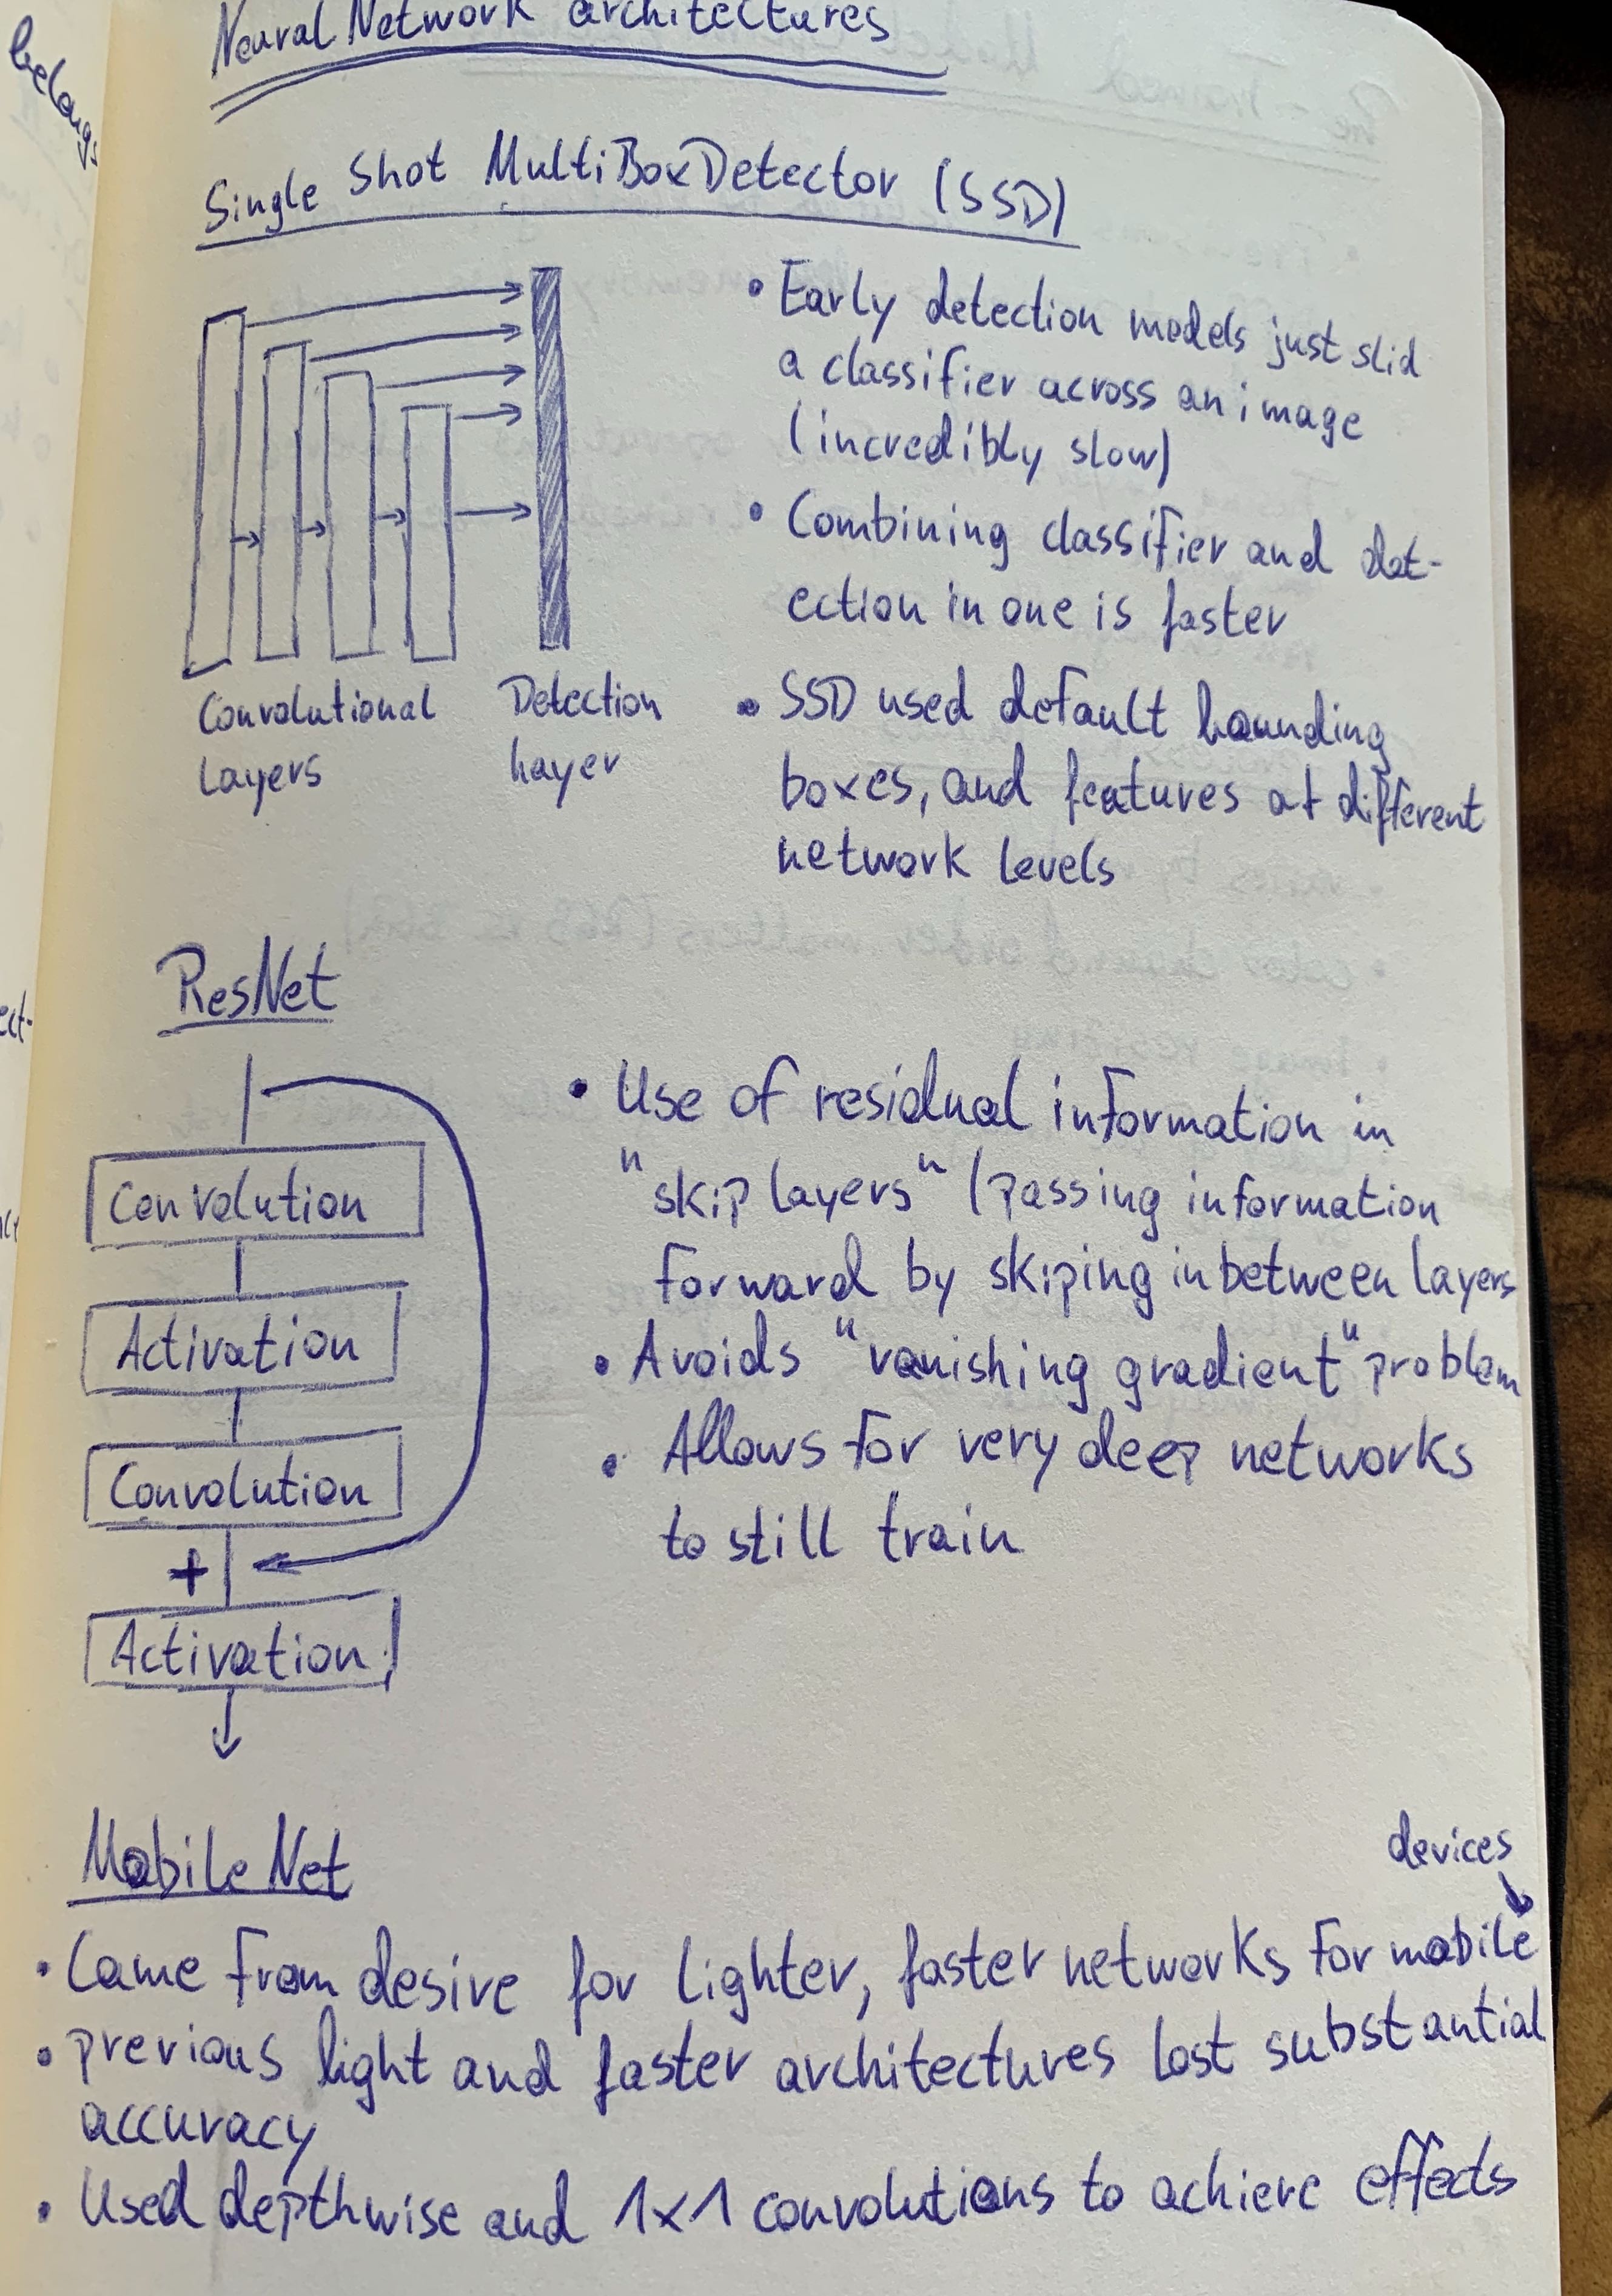 belongs
Neural Network architectures
Single Shot MultiBoxDetector (SSD)
• Early detection models just slid
a classifier across an image
(incredibly slow)
• Combining classifier and det-
ection in one is faster
Convolutional
Layers
Detection
Layer
• SSD used default bounding
boxes, and features at different
network levels
ResNet
Convolution
Activation
Convolution
+
Activation
• Use of residual information in
"skip layers" (passing information
forward by skiping inbetween layers
• Avoids "vanishing gradient" problem
• Allows for very deep networks
to still train
MobileNet
devices
• Came from desire for lighter, faster networks for mobile
• previous light and faster architectures lost substantial
accuracy
• Used depthwise and 1x1 convolutions to achieve effects